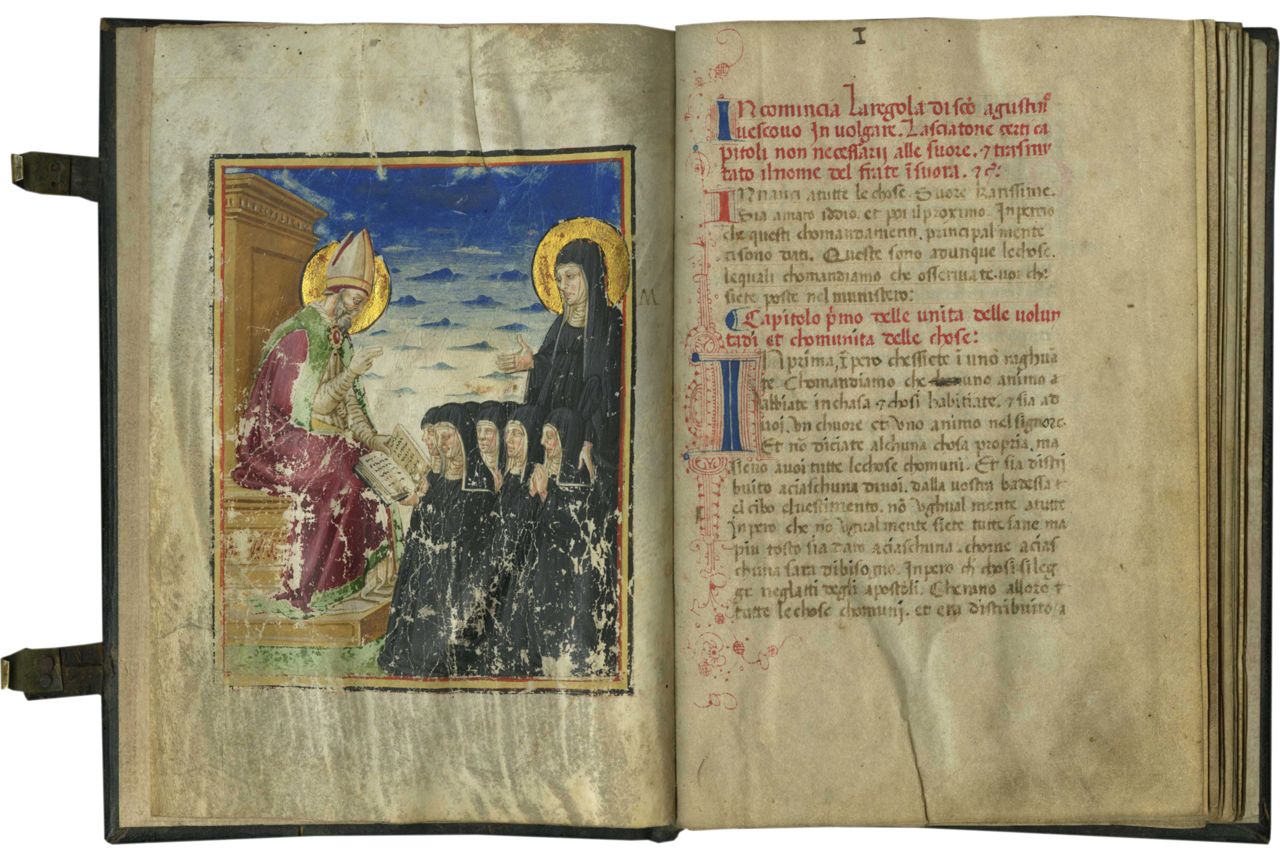 I
M
INcomincia La regola di sc̄o agustin°
uescouo In uolgare. Lasciatone certi ca
pitoli non necessarii alle suore. ⁊ trasmu
tato il nome del frate ī suora. ⁊ c̃:
INnanci a tutte le chose. Suore Karissime.
Sia amato iddio. et poi il proximo. Inpercio
che questi chomandamenti. principalmente
ci sono dati. Queste sono adunque le chose.
le quali chomandiamo che osseruiate. uoi che
siete poste nel munistero:
Capitolo p̃mo delle unita delle uolun
tadi et chomunita delle chose:
IN prima, ī pero che ssiete ī uno raghuna
te. Chomandiamo che uno animo a
abbiate in chasa ⁊ chosi habitiate. ⁊ sia ad
uoi. Vn chuore et vno animo nel signore.
Et nō diciate alchuna chosa propria, ma
sieno a uoi tutte le chose chomuni. Et sia distri
buito a ciaschuna di uoi. dalla vostra badessa ⁊
el cibo el uestimento. nō vghual mente a tutte
Inpero che nō vgualmente siete tutte sane ma
piu tosto sia dato a ciaschuna. chome a cias
chuna sara di bisogno. Inpero ch̄ chosi si leg
ge negl atti degli apostoli. Cherano alloro ⁊
tutte le chose chomuni. et era distribuito a